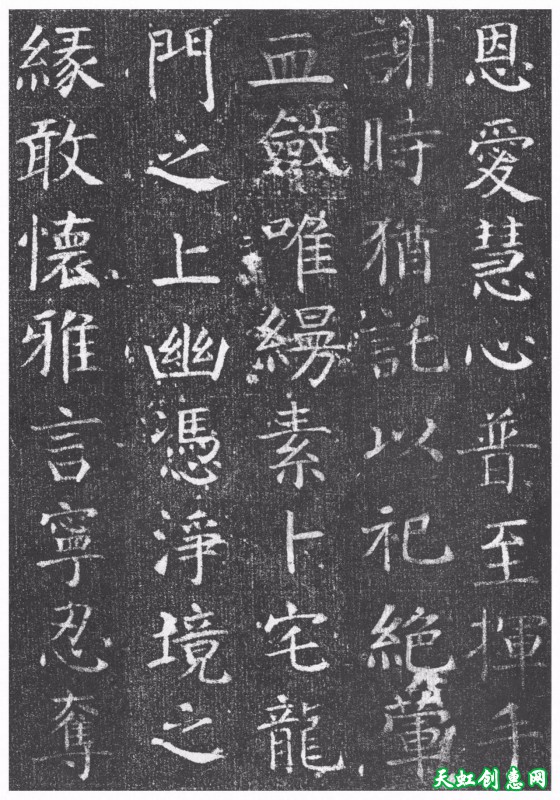 恩愛慧心普至揮手
謝時猶託以祀絕葷
血斂唯縵素卜宅龍
門之上幽憑淨境之
緣敢懷雅言寧忍奪
天虹创惠网